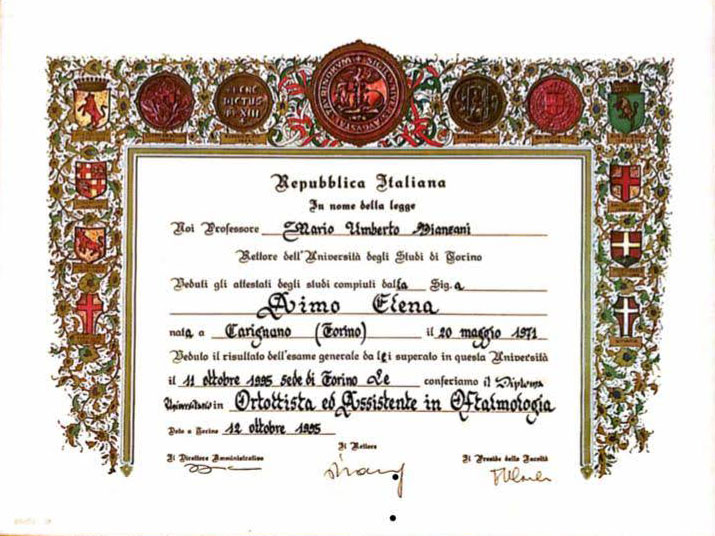 SIGILLUM
BENE
DICTUS
PP XIII
Repubblica Italiana
In nome della legge
Noi Professore Mario Umberto Dianzani
Rettore dell'Università degli Studi di Torino
Veduti gli attestati degli studi compiuti dalla Sig.a
Aimo Elena
nata a Carignano (Torino) il 20 maggio 1971
Veduto il risultato dell'esame generale da lei superato in questa Università
il 11 ottobre 1995 sede di Torino Le conferiamo il Diploma
Universitario in Ortottista ed Assistente in Oftalmologia
Dato a Torino 12 ottobre 1995
Il Rettore
Il Direttore Amministrativo Il Preside della Facoltà